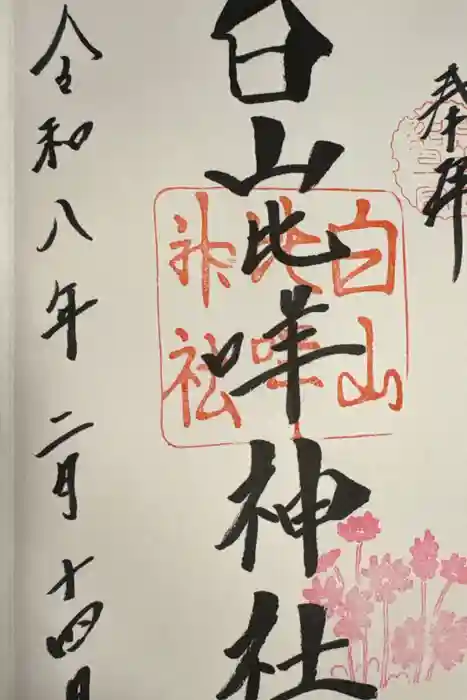 奉拝
白山比咩神社
白山比咩神社
令和八年二月十四日